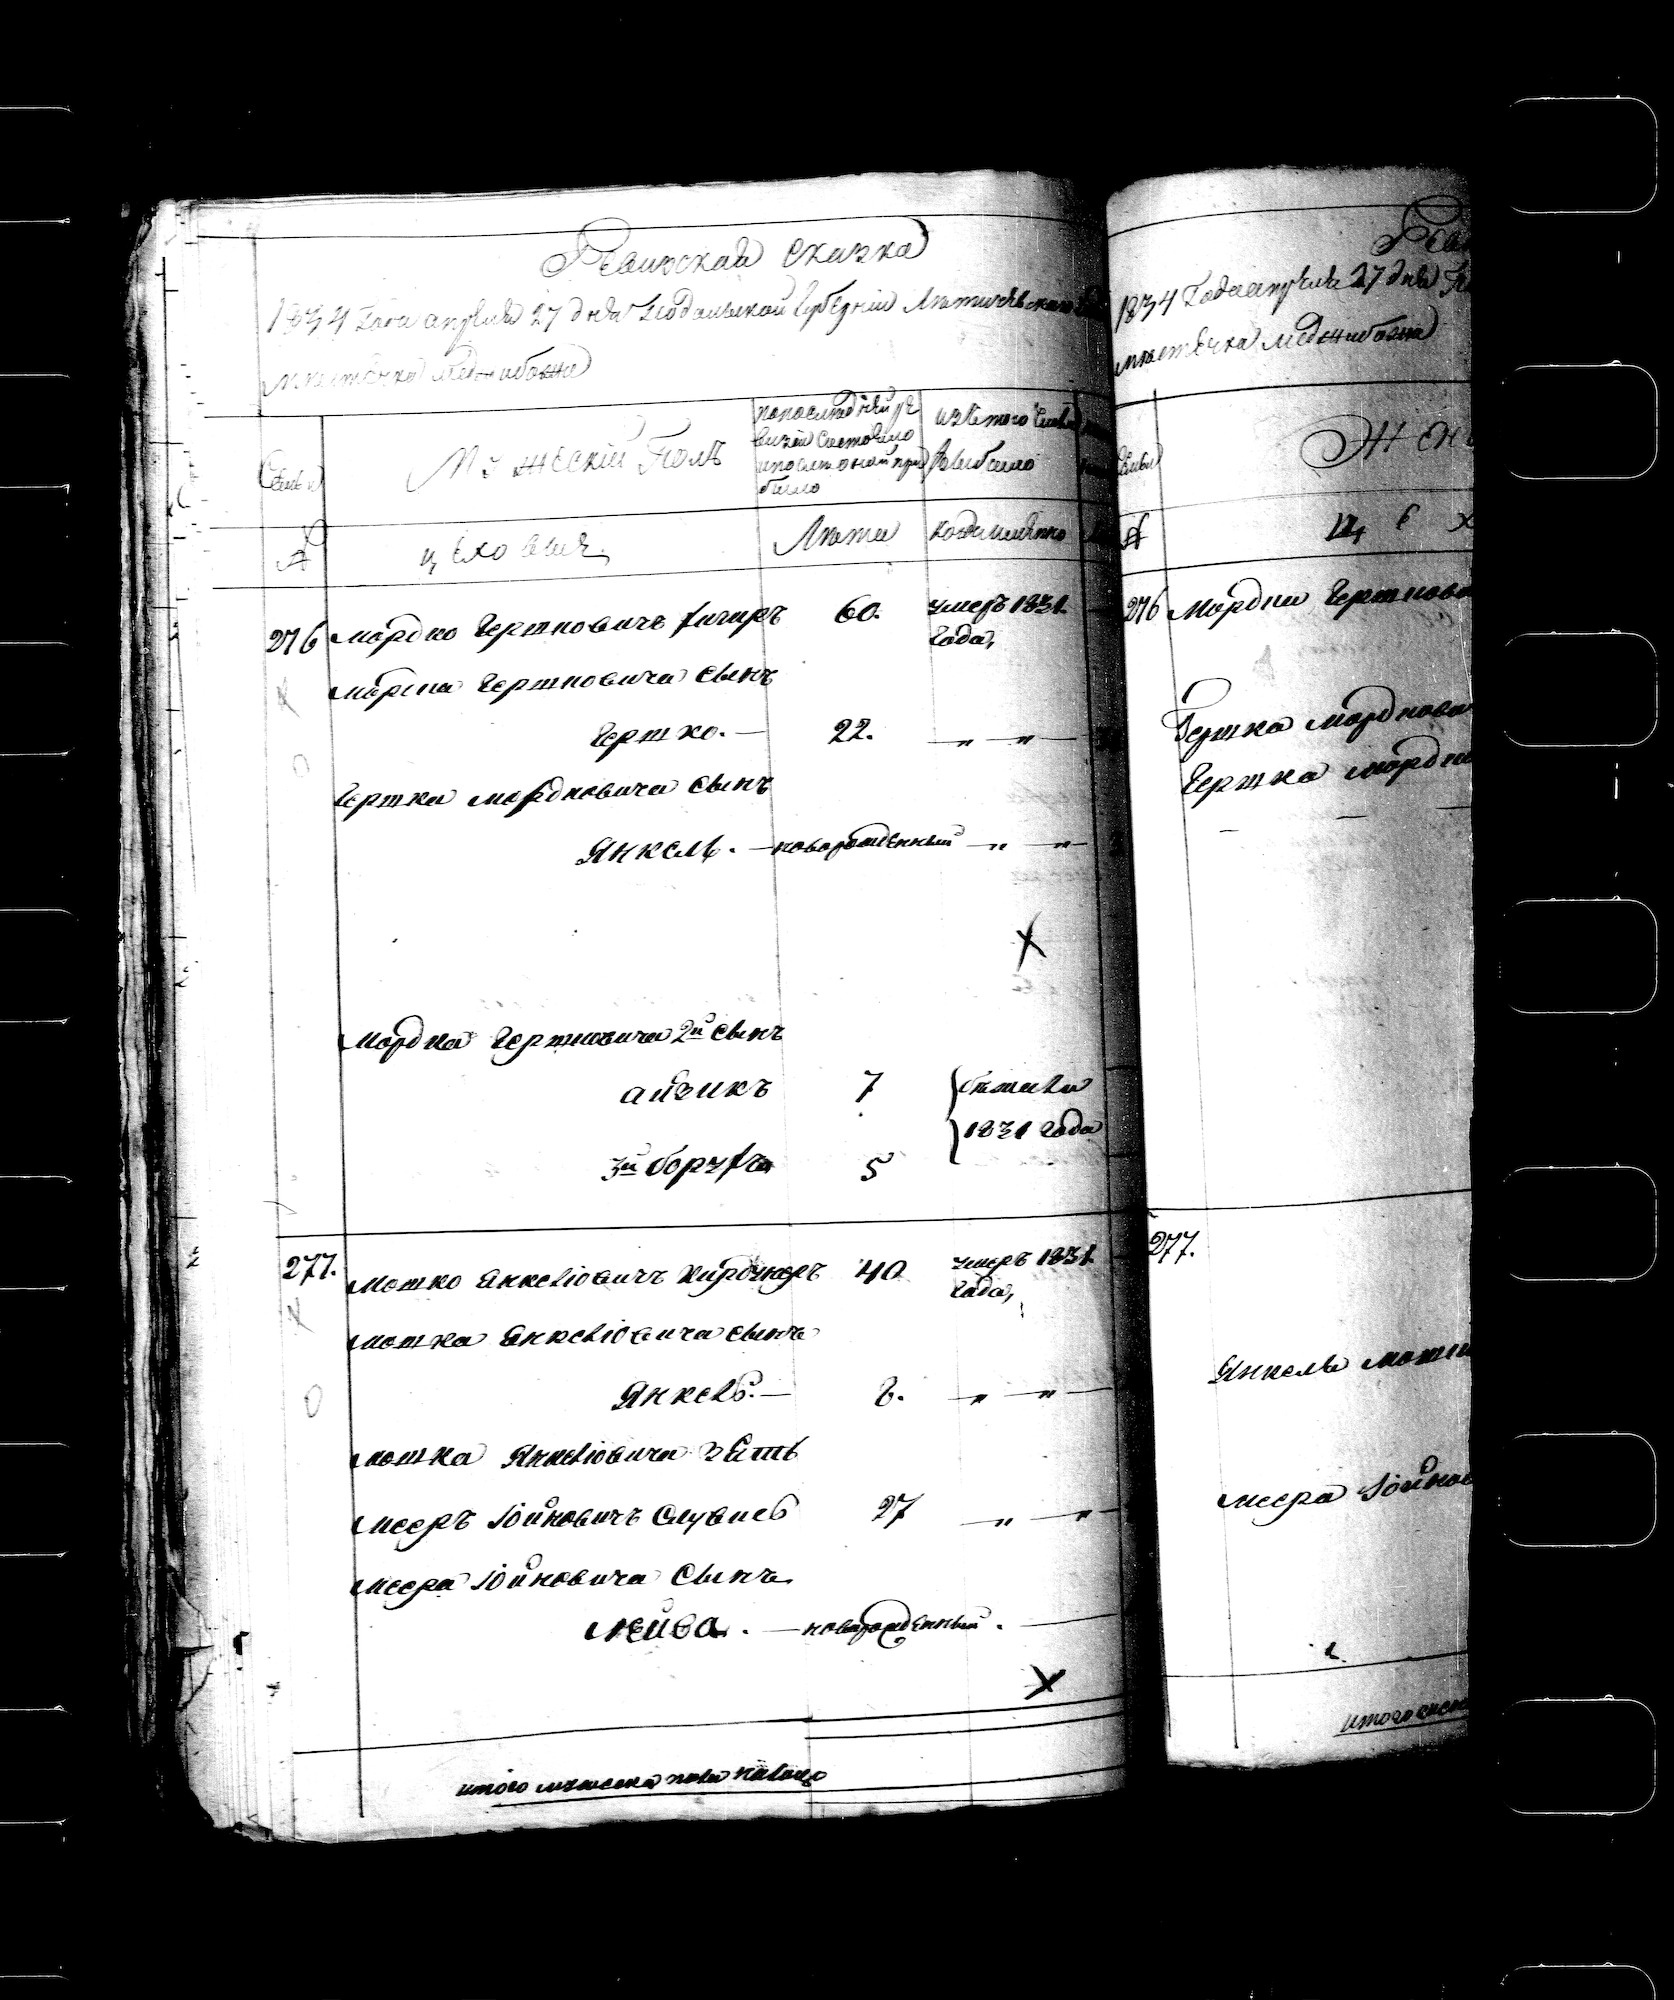 Ревизская сказка
1834 Года апреля 27 дня Подольской Губерніи Летичевского
местечка Меджибожа
Семьи
Мужескій Полъ
по последней ре
визіи состояло
и после оной при
было
изъ того числа
выбыло
№
цеховые
Лета
когда именно
276 Мордко Гершковичъ 60. умеръ 1831
Года,
Мордка Гершковича сынъ
Гершко. — 22. „ — „ —
Гершка Мордковича сынъ
Янкель. — новорожденный — „ — „ —
Мордка Гершковича 2й сынъ
Айзикъ 7 бежали
1831 Года
3й Борухъ 5
277. Мошко Янкеліовичъ 40 умеръ 1831
Года,
Мошка Янкеліовича сынъ
Янкель. — 8. „ — „ —
Мошка Янкеліовича зять
Мееръ Іойновичъ 27 „ — „ —
Меера Іойновича сынъ
Лейба. — новорожденный. —
итого мужеска пола налицо
1834 Года апреля 27 дня
местечка Меджибожа
Семьи
Жен
№
276 Мордка Гершкова
Гершка Мордкова
Гершка Мордк
277.
Янкеля Мошк
Меера Іойнов
итого